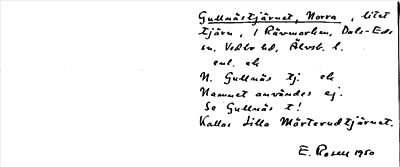 Gullnästjärnet, Norra, litet
tjärn, i Rävmarken, Dals-Eds
sn, Vedbo hd, Älvsb. l.
enl. ek
N. Gullnäs tj. ek
Namnet användes ej.
Se Gullnäs t!
Kallas Lilla Mörterudtjärnet.
E. Rosell 1950